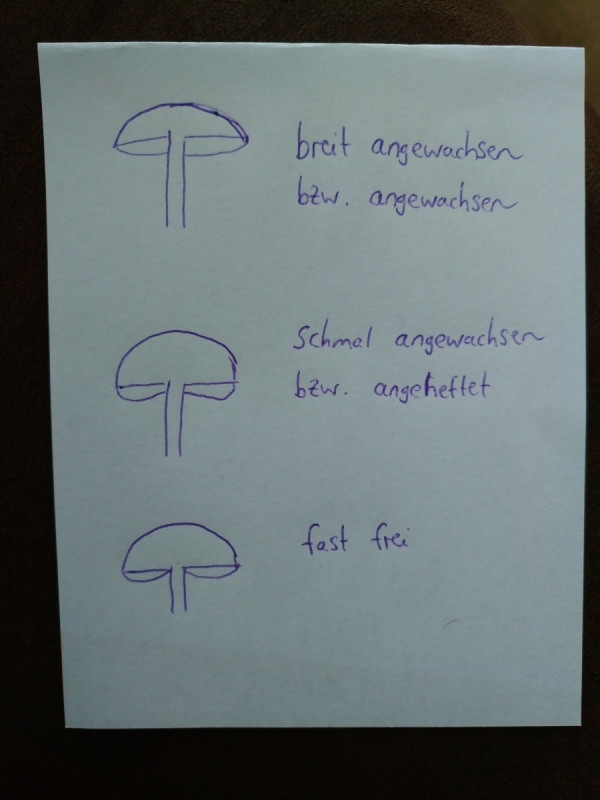 breit angewachsen
bzw. angewachsen
Schmal angewachsen
bzw. angeheftet
fast frei